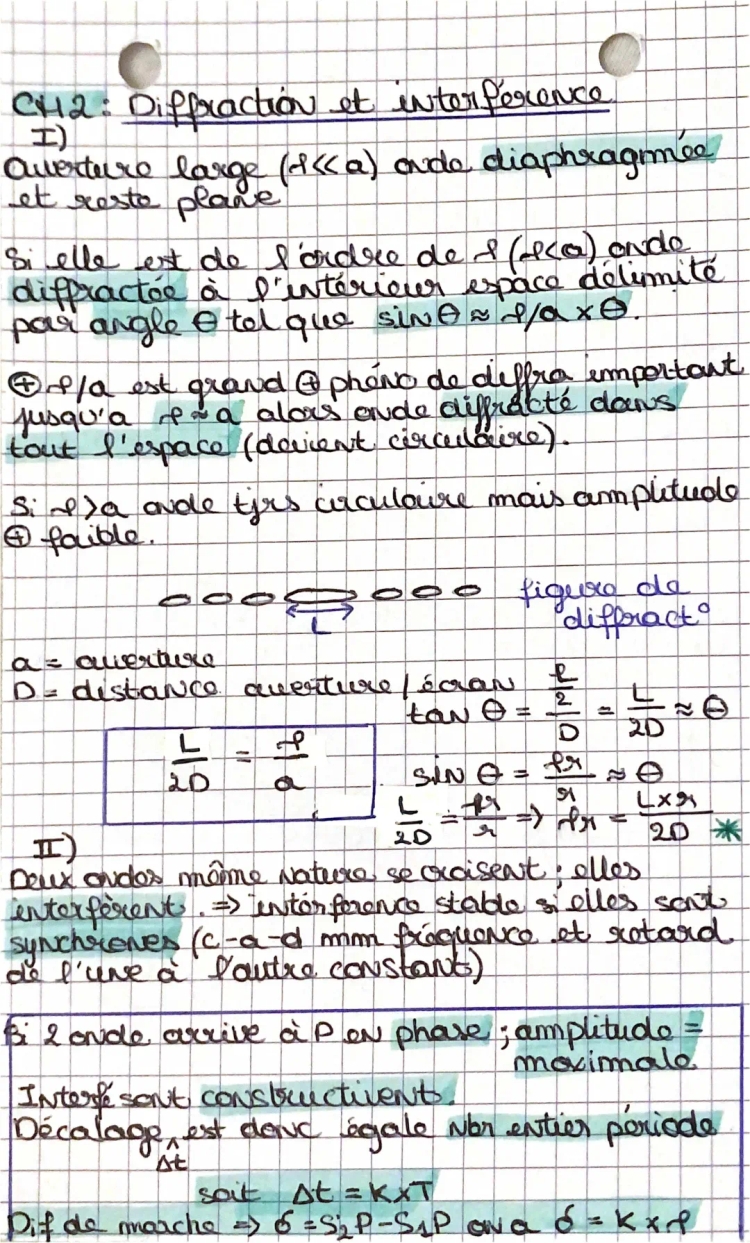 CH2: Diffraction et interférence
I)
Ouverture large (λ<<a) onde diaphragmée
et reste plane
Si elle est de l'ordre de λ (λ<a) onde
diffractée à l'intérieur espace délimité
par angle θ tel que sin θ ≈ λ/a × θ.
⊕ λ/a est grand ⊕ phéno de diffra important
jusqu'a λ ≈ a alors onde diffracté dans
tout l'espace (devient circulaire).
Si λ>a onde tjrs circulaire mais amplitude
⊕ faible.
figure de
diffract°
L
a = ouverture
D = distance ouverture / écran
tan θ = (L/2)/D = L/2D ≈ θ
L/2D = λ/a
sin θ = λr/r ≈ θ
L/2D = λr/r => λr = L×r/2D *
II)
Deux ondes même nature se croisent ; elles
interfèrent. => interférence stable si elles sont
synchrones (c-a-d mmm fréquence et retard
de l'une à l'autre constant)
Si 2 onde arrive à P en phase ; amplitude =
maximale
Interfé sont constructivent.
Décalage ^ est donc égale nbr entier période
Δt
soit Δt = K×T
Dif de marche => δ = S₂P - S₁P on a δ = K × λ